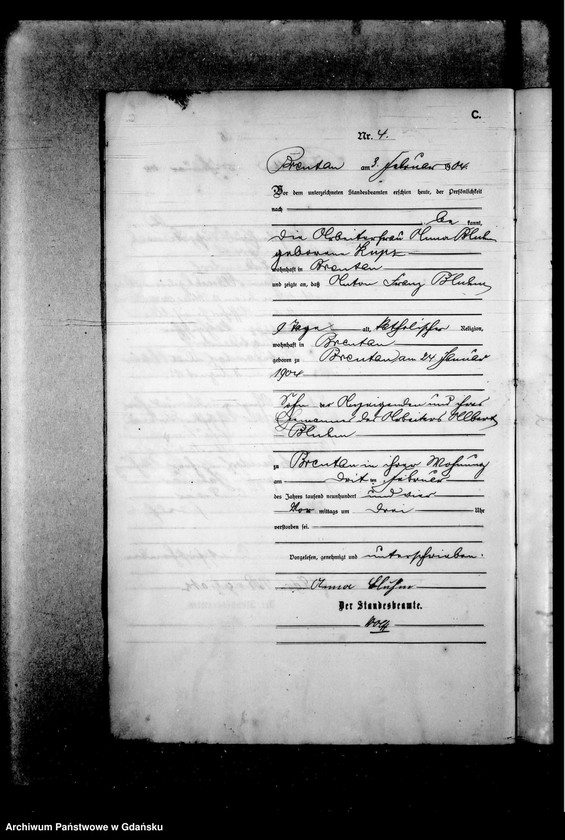 C.
Nr. 4.
Brentau am 3. Februar 1904.
Vor dem unterzeichneten Standesbeamten erschien heute, der Persönlichkeit
nach
be kannt,
die Arbeiterfrau Anna Bluhm
geborene
wohnhaft in Brentau
und zeigte an, daß Anton Franz Bluhm
9 Tage alt, katholischer Religion,
wohnhaft in Brentau
geboren zu Brentau am 24 Januar
1904
Sohn der Anzeigenden und ihres
Ehemannes des Arbeiters Albert
Bluhm
zu Brentau in ihrer Wohnung
am dritten Februar
des Jahres tausend neunhundert und vier
Vor mittags um drei Uhr
verstorben sei.
Vorgelesen, genehmigt und unterschrieben.
Anna Bluhm
Der Standesbeamte.
Archiwum Państwowe w Gdańsku